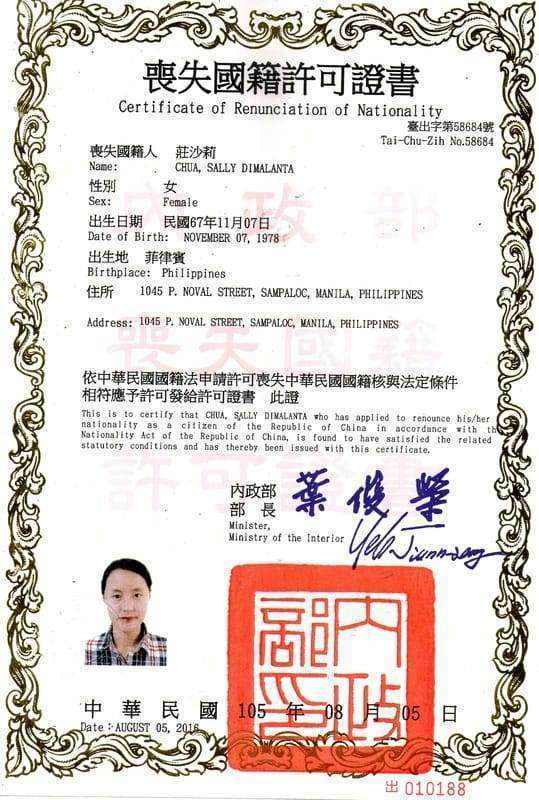 喪失國籍許可證書
Certificate of Renunciation of Nationality
臺出字第58684號
Tai-Chu-Zih No.58684
喪失國籍人 莊沙莉
Name: CHUA, SALLY DIMALANTA
性別 女
Sex: Female
出生日期 民國67年11月07日
Date of Birth: NOVEMBER 07, 1978
出生地 菲律賓
Birthplace: Philippines
住所 1045 P. NOVAL STREET, SAMPALOC, MANILA, PHILIPPINES
Address: 1045 P. NOVAL STREET, SAMPALOC, MANILA, PHILIPPINES
內政部
喪失國籍
許可證書
依中華民國國籍法申請許可喪失中華民國國籍核與法定條件
相符應予許可發給許可證書 此證
This is to certify that CHUA, SALLY DIMALANTA who has applied to renounce his/her
nationality as a citizen of the Republic of China in accordance with the
Nationality Act of the Republic of China, is found to have satisfied the related
statutory conditions and has thereby been issued with this certificate.
內政部
部長 葉俊榮
Minister,
Ministry of the Interior
內政部印
中華民國 105 年 08 月 05 日
Date：AUGUST 05, 2016
出 010188